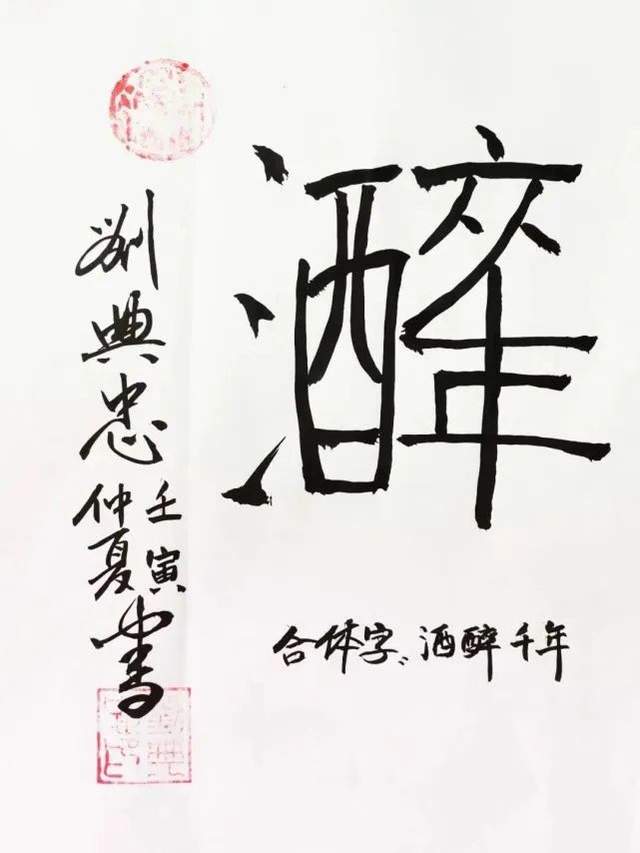 合体字、酒醉千年
劉典忠
壬寅
仲夏
書